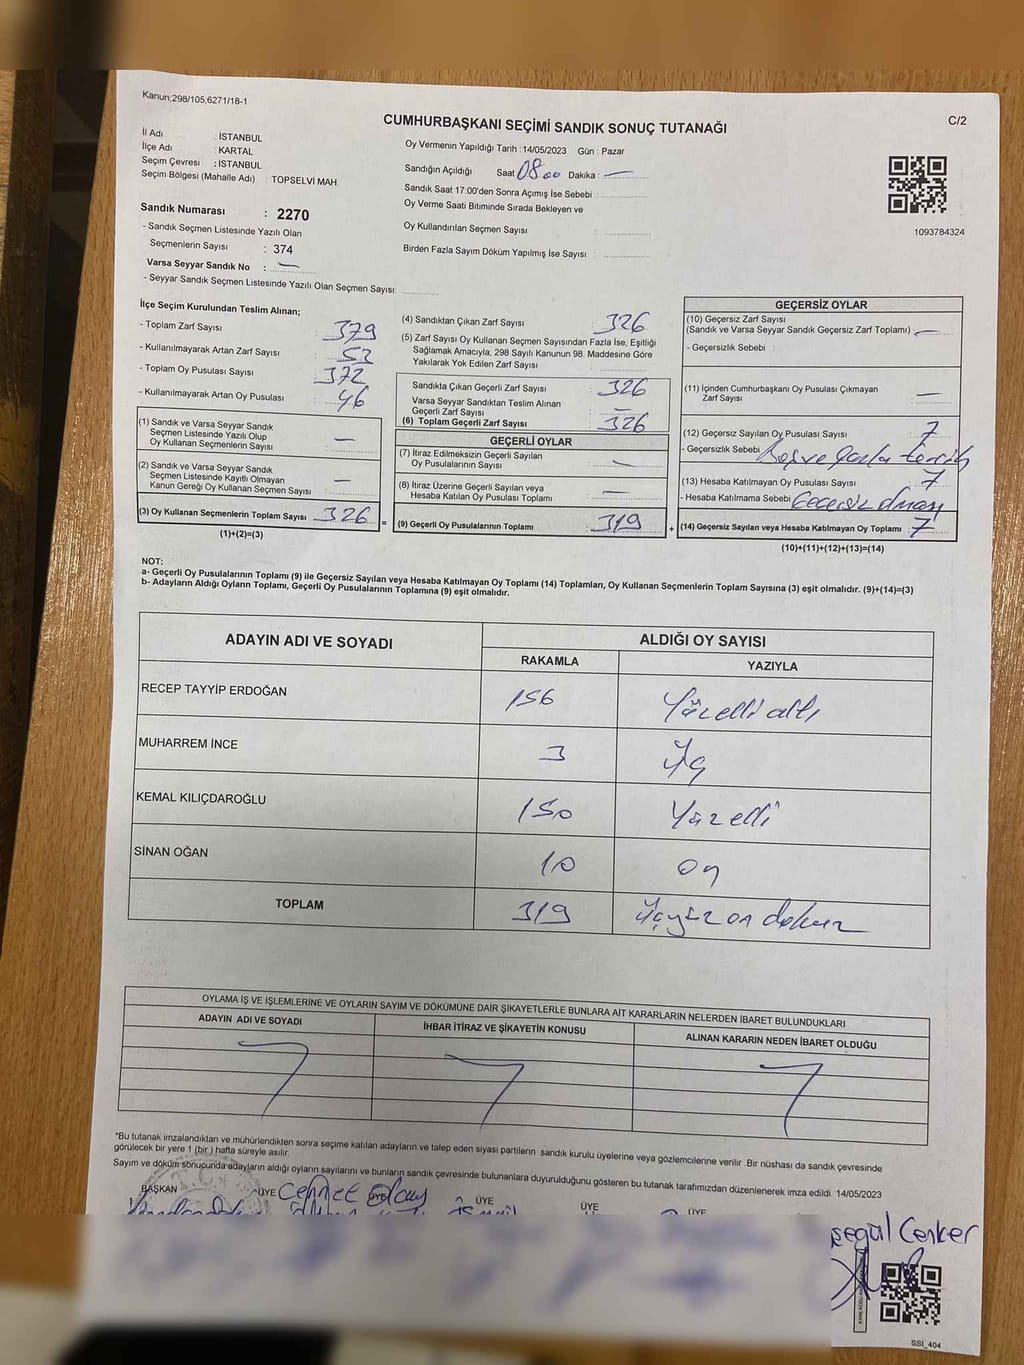 Kanun;298/105,6271/18-1
CUMHURBAŞKANI SEÇİMİ SANDIK SONUÇ TUTANAĞI
C/2
İl Adı : İSTANBUL
İlçe Adı : KARTAL
Seçim Çevresi : İSTANBUL
Seçim Bölgesi (Mahalle Adı) : TOPSELVİ MAH.
Sandık Numarası : 2270
- Sandık Seçmen Listesinde Yazılı Olan
Seçmenlerin Sayısı : 374
Varsa Seyyar Sandık No : —
- Seyyar Sandık Seçmen Listesinde Yazılı Olan Seçmen Sayısı:
Oy Vermenin Yapıldığı Tarih :14/05/2023 Gün : Pazar
Sandığın Açıldığı Saat 08.00 Dakika : —
Sandık Saat 17:00'den Sonra Açımış İse Sebebi :
Oy Verme Saati Bitiminde Sırada Bekleyen ve
Oy Kullandırılan Seçmen Sayısı :
Birden Fazla Sayım Döküm Yapılmış İse Sayısı :
1093784324
İlçe Seçim Kurulundan Teslim Alınan;
- Toplam Zarf Sayısı : 379
- Kullanılmayarak Artan Zarf Sayısı : 53
- Toplam Oy Pusulası Sayısı : 372
- Kullanılmayarak Artan Oy Pusulası : 46
(1) Sandık ve Varsa Seyyar Sandık
Seçmen Listesinde Yazılı Olup
Oy Kullanan Seçmenlerin Sayısı : —
(2) Sandık ve Varsa Seyyar Sandık
Seçmen Listesinde Kayıtlı Olmayan
Kanun Gereği Oy Kullanan Seçmen Sayısı : —
(3) Oy Kullanan Seçmenlerin Toplam Sayısı : 326
(1)+(2)=(3)
(4) Sandıktan Çıkan Zarf Sayısı : 326
(5) Zarf Sayısı Oy Kullanan Seçmen Sayısından Fazla İse, Eşitliği
Sağlamak Amacıyla; 298 Sayılı Kanunun 98. Maddesine Göre
Yakılarak Yok Edilen Zarf Sayısı :
Sandıkta Çıkan Geçerli Zarf Sayısı : 326
Varsa Seyyar Sandıktan Teslim Alınan
Geçerli Zarf Sayısı : —
(6) Toplam Geçerli Zarf Sayısı : 326
GEÇERLİ OYLAR
(7) İtiraz Edilmeksizin Geçerli Sayılan
Oy Pusulalarının Sayısı : —
(8) İtiraz Üzerine Geçerli Sayılan veya
Hesaba Katılan Oy Pusulası Toplamı : —
= (9) Geçerli Oy Pusulalarının Toplamı : 319 +
GEÇERSİZ OYLAR
(10) Geçersiz Zarf Sayısı
(Sandık ve Varsa Seyyar Sandık Geçersiz Zarf Toplamı) : —
- Geçersizlik Sebebi :
(11) İçinden Cumhurbaşkanı Oy Pusulası Çıkmayan
Zarf Sayısı : —
(12) Geçersiz Sayılan Oy Pusulası Sayısı : 7
- Geçersizlik Sebebi Boş ve fazla tercih
(13) Hesaba Katılmayan Oy Pusulası Sayısı : 7
- Hesaba Katılmama Sebebi Geçersiz olması
(14) Geçersiz Sayılan veya Hesaba Katılmayan Oy Toplamı : 7
(10)+(11)+(12)+(13)=(14)
NOT:
a- Geçerli Oy Pusulalarının Toplamı (9) ile Geçersiz Sayılan veya Hesaba Katılmayan Oy Toplamı (14) Toplamları, Oy Kullanan Seçmenlerin Toplam Sayısına (3) eşit olmalıdır. (9)+(14)=(3)
b- Adayların Aldığı Oyların Toplamı, Geçerli Oy Pusulalarının Toplamına (9) eşit olmalıdır.
ADAYIN ADI VE SOYADI
ALDIĞI OY SAYISI
RAKAMLA YAZIYLA
RECEP TAYYİP ERDOĞAN 156 Yüzelli altı
MUHARREM İNCE 3 Üç
KEMAL KILIÇDAROĞLU 150 Yüzelli
SİNAN OĞAN 10 On
TOPLAM 319 Üçyüz on dokuz
OYLAMA İŞ VE İŞLEMLERİNE VE OYLARIN SAYIM VE DÖKÜMÜNE DAİR ŞİKAYETLERLE BUNLARA AİT KARARLARIN NELERDEN İBARET BULUNDUKLARI
ADAYIN ADI VE SOYADI İHBAR İTİRAZ VE ŞİKAYETİN KONUSU ALINAN KARARIN NEDEN İBARET OLDUĞU
*Bu tutanak imzalandıktan ve mühürlendikten sonra seçime katılan adayların ve talep eden siyasi partilerin sandık kurulu üyelerine veya gözlemcilerine verilir. Bir nüshası da sandık çevresinde
görülecek bir yere 1 (bir ) hafta süreyle asılır.
Sayım ve döküm sonucunda adayların aldığı oyların sayılarını ve bunların sandık çevresinde bulunanlara duyurulduğunu gösteren bu tutanak tarafımızdan düzenlenerek imza edildi. 14/05/2023
T.C.
BAŞKAN ÜYE Cennet ÜYE ÜYE ÜYE ÜYE
Cenker
SSİ_404